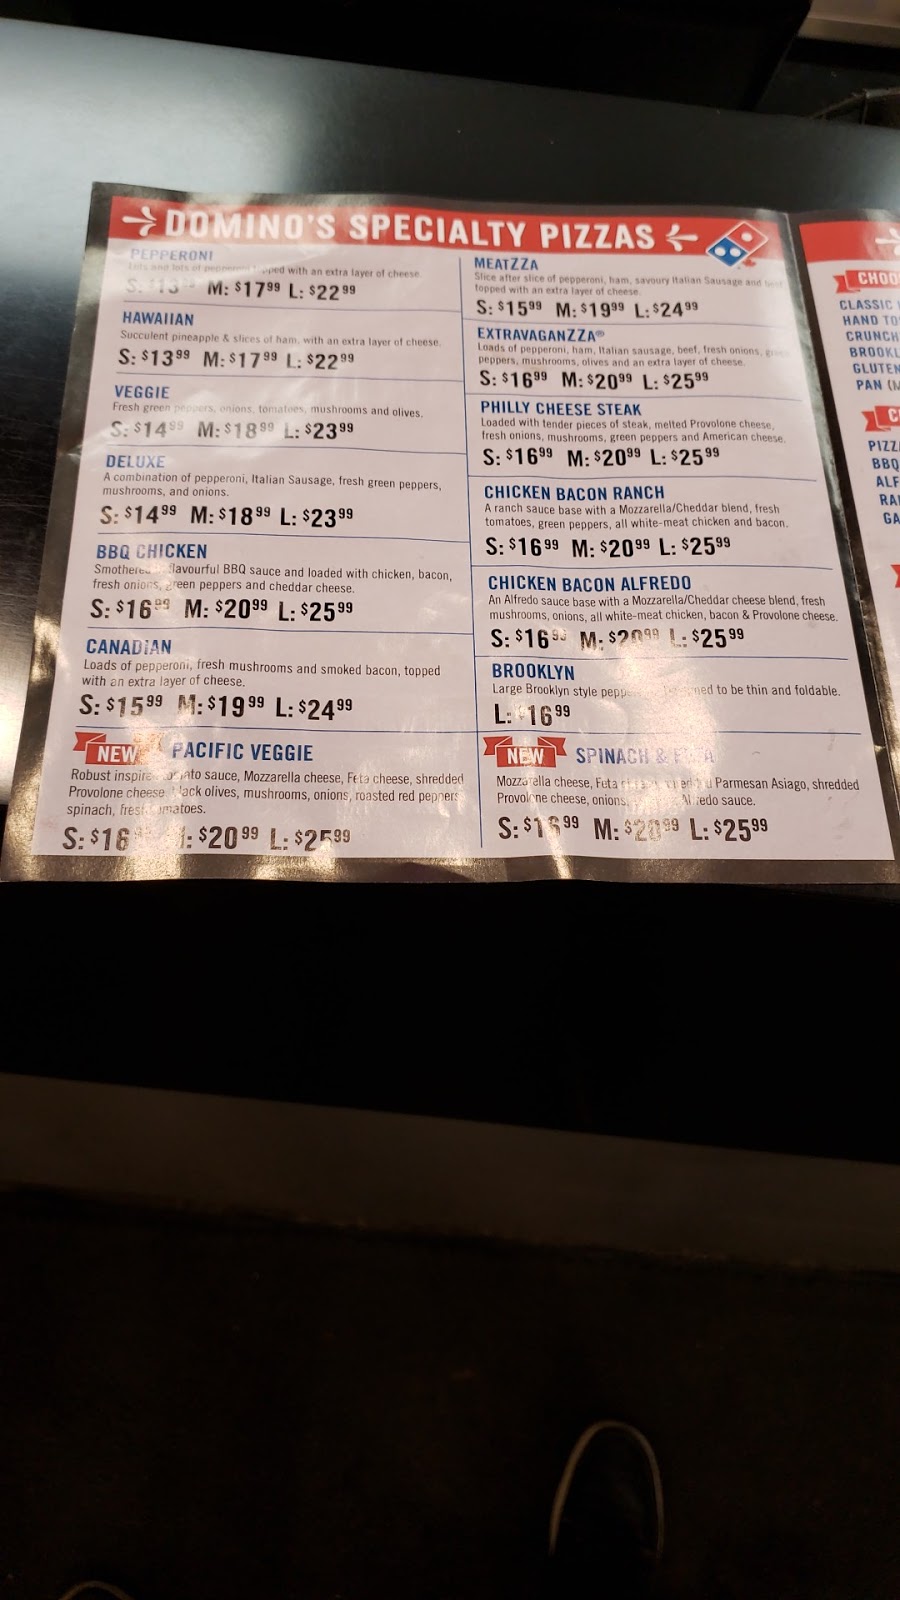 DOMINO'S SPECIALTY PIZZAS
PEPPERONI
Lots and lots of pepperoni topped with an extra layer of cheese.
M: $17.99 L: $22.99
HAWAIIAN
Succulent pineapple & slices of ham, with an extra layer of cheese.
S: $13.99 M: $17.99 L: $22.99
VEGGIE
Fresh green peppers, onions, tomatoes, mushrooms and olives.
S: $14.99 M: $18.99 L: $23.99
DELUXE
A combination of pepperoni, Italian Sausage, fresh green peppers,
mushrooms, and onions.
S: $14.99 M: $18.99 L: $23.99
BBQ CHICKEN
Smothered flavourful BBQ sauce and loaded with chicken, bacon,
fresh onions, green peppers and cheddar cheese.
S: $16.99 M: $20.99 L: $25.99
CANADIAN
Loads of pepperoni, fresh mushrooms and smoked bacon, topped
with an extra layer of cheese.
S: $15.99 M: $19.99 L: $24.99
NEW PACIFIC VEGGIE
Robust inspired tomato sauce, Mozzarella cheese, Feta cheese, shredded
Provolone cheese, black olives, mushrooms, onions, roasted red peppers,
spinach, fresh tomatoes.
S: $16 M: $20.99 L: $25.99
MEATZZA
Slice after slice of pepperoni, ham, savoury Italian Sausage and beef
topped with an extra layer of cheese.
S: $15.99 M: $19.99 L: $24.99
EXTRAVAGANZZA®
Loads of pepperoni, ham, Italian sausage, beef, fresh onions, green
peppers, mushrooms, olives and an extra layer of cheese.
S: $16.99 M: $20.99 L: $25.99
PHILLY CHEESE STEAK
Loaded with tender pieces of steak, melted Provolone cheese,
fresh onions, mushrooms, green peppers and American cheese.
S: $16.99 M: $20.99 L: $25.99
CHICKEN BACON RANCH
A ranch sauce base with a Mozzarella/Cheddar blend, fresh
tomatoes, green peppers, all white-meat chicken and bacon.
S: $16.99 M: $20.99 L: $25.99
CHICKEN BACON ALFREDO
An Alfredo sauce base with a Mozzarella/Cheddar cheese blend, fresh
mushrooms, onions, all white-meat chicken, bacon & Provolone cheese.
S: $16.99 M: $20.99 L: $25.99
BROOKLYN
Large Brooklyn style to be thin and foldable.
L: $16.99
NEW SPINACH & FETA
Mozzarella cheese, Feta Parmesan Asiago, shredded
Provolone cheese, onions, Alfredo sauce.
S: $16.99 M: $20.99 L: $25.99
CHOO
CLASSIC
HAND TO
CRUNCH
BROOKL
GLUTEN
PAN (M
PIZZ
BBQ
ALF
RA
GA